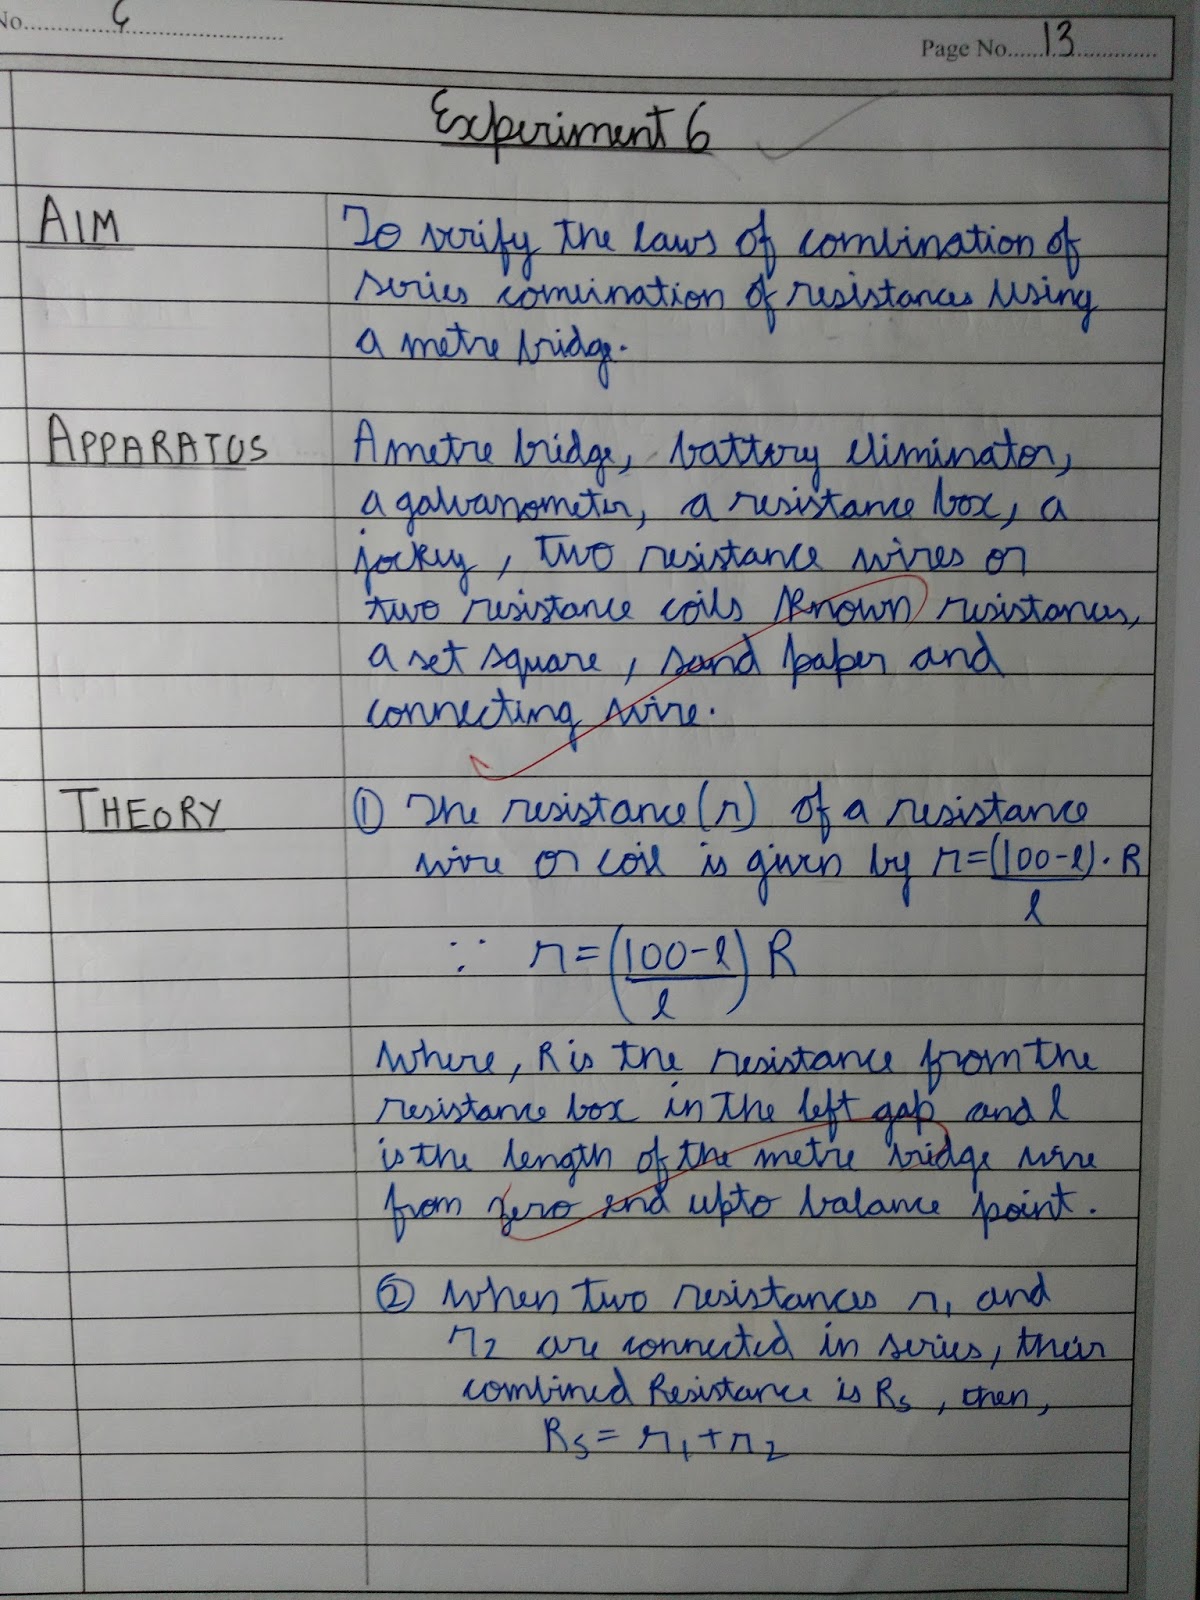 No. 6
Page No. 13
Experiment 6
AIM
To verify the laws of combination of
series combination of resistances using
a metre bridge.
APPARATUS
A metre bridge, battery eliminator,
a galvanometer, a resistance box, a
jockey, two resistance wires or
two resistance coils known resistances,
a set square, sand paper and
connecting wire.
THEORY
① The resistance (r) of a resistance
wire or coil is given by r = (100-l) . R
l
∵ r = (100-l / l) R
Where, R is the resistance from the
resistance box in the left gap and l
is the length of the metre bridge wire
from zero end upto balance point.
② When two resistances r₁ and
r₂ are connected in series, their
combined Resistance is Rs, then,
Rs = r₁ + r₂